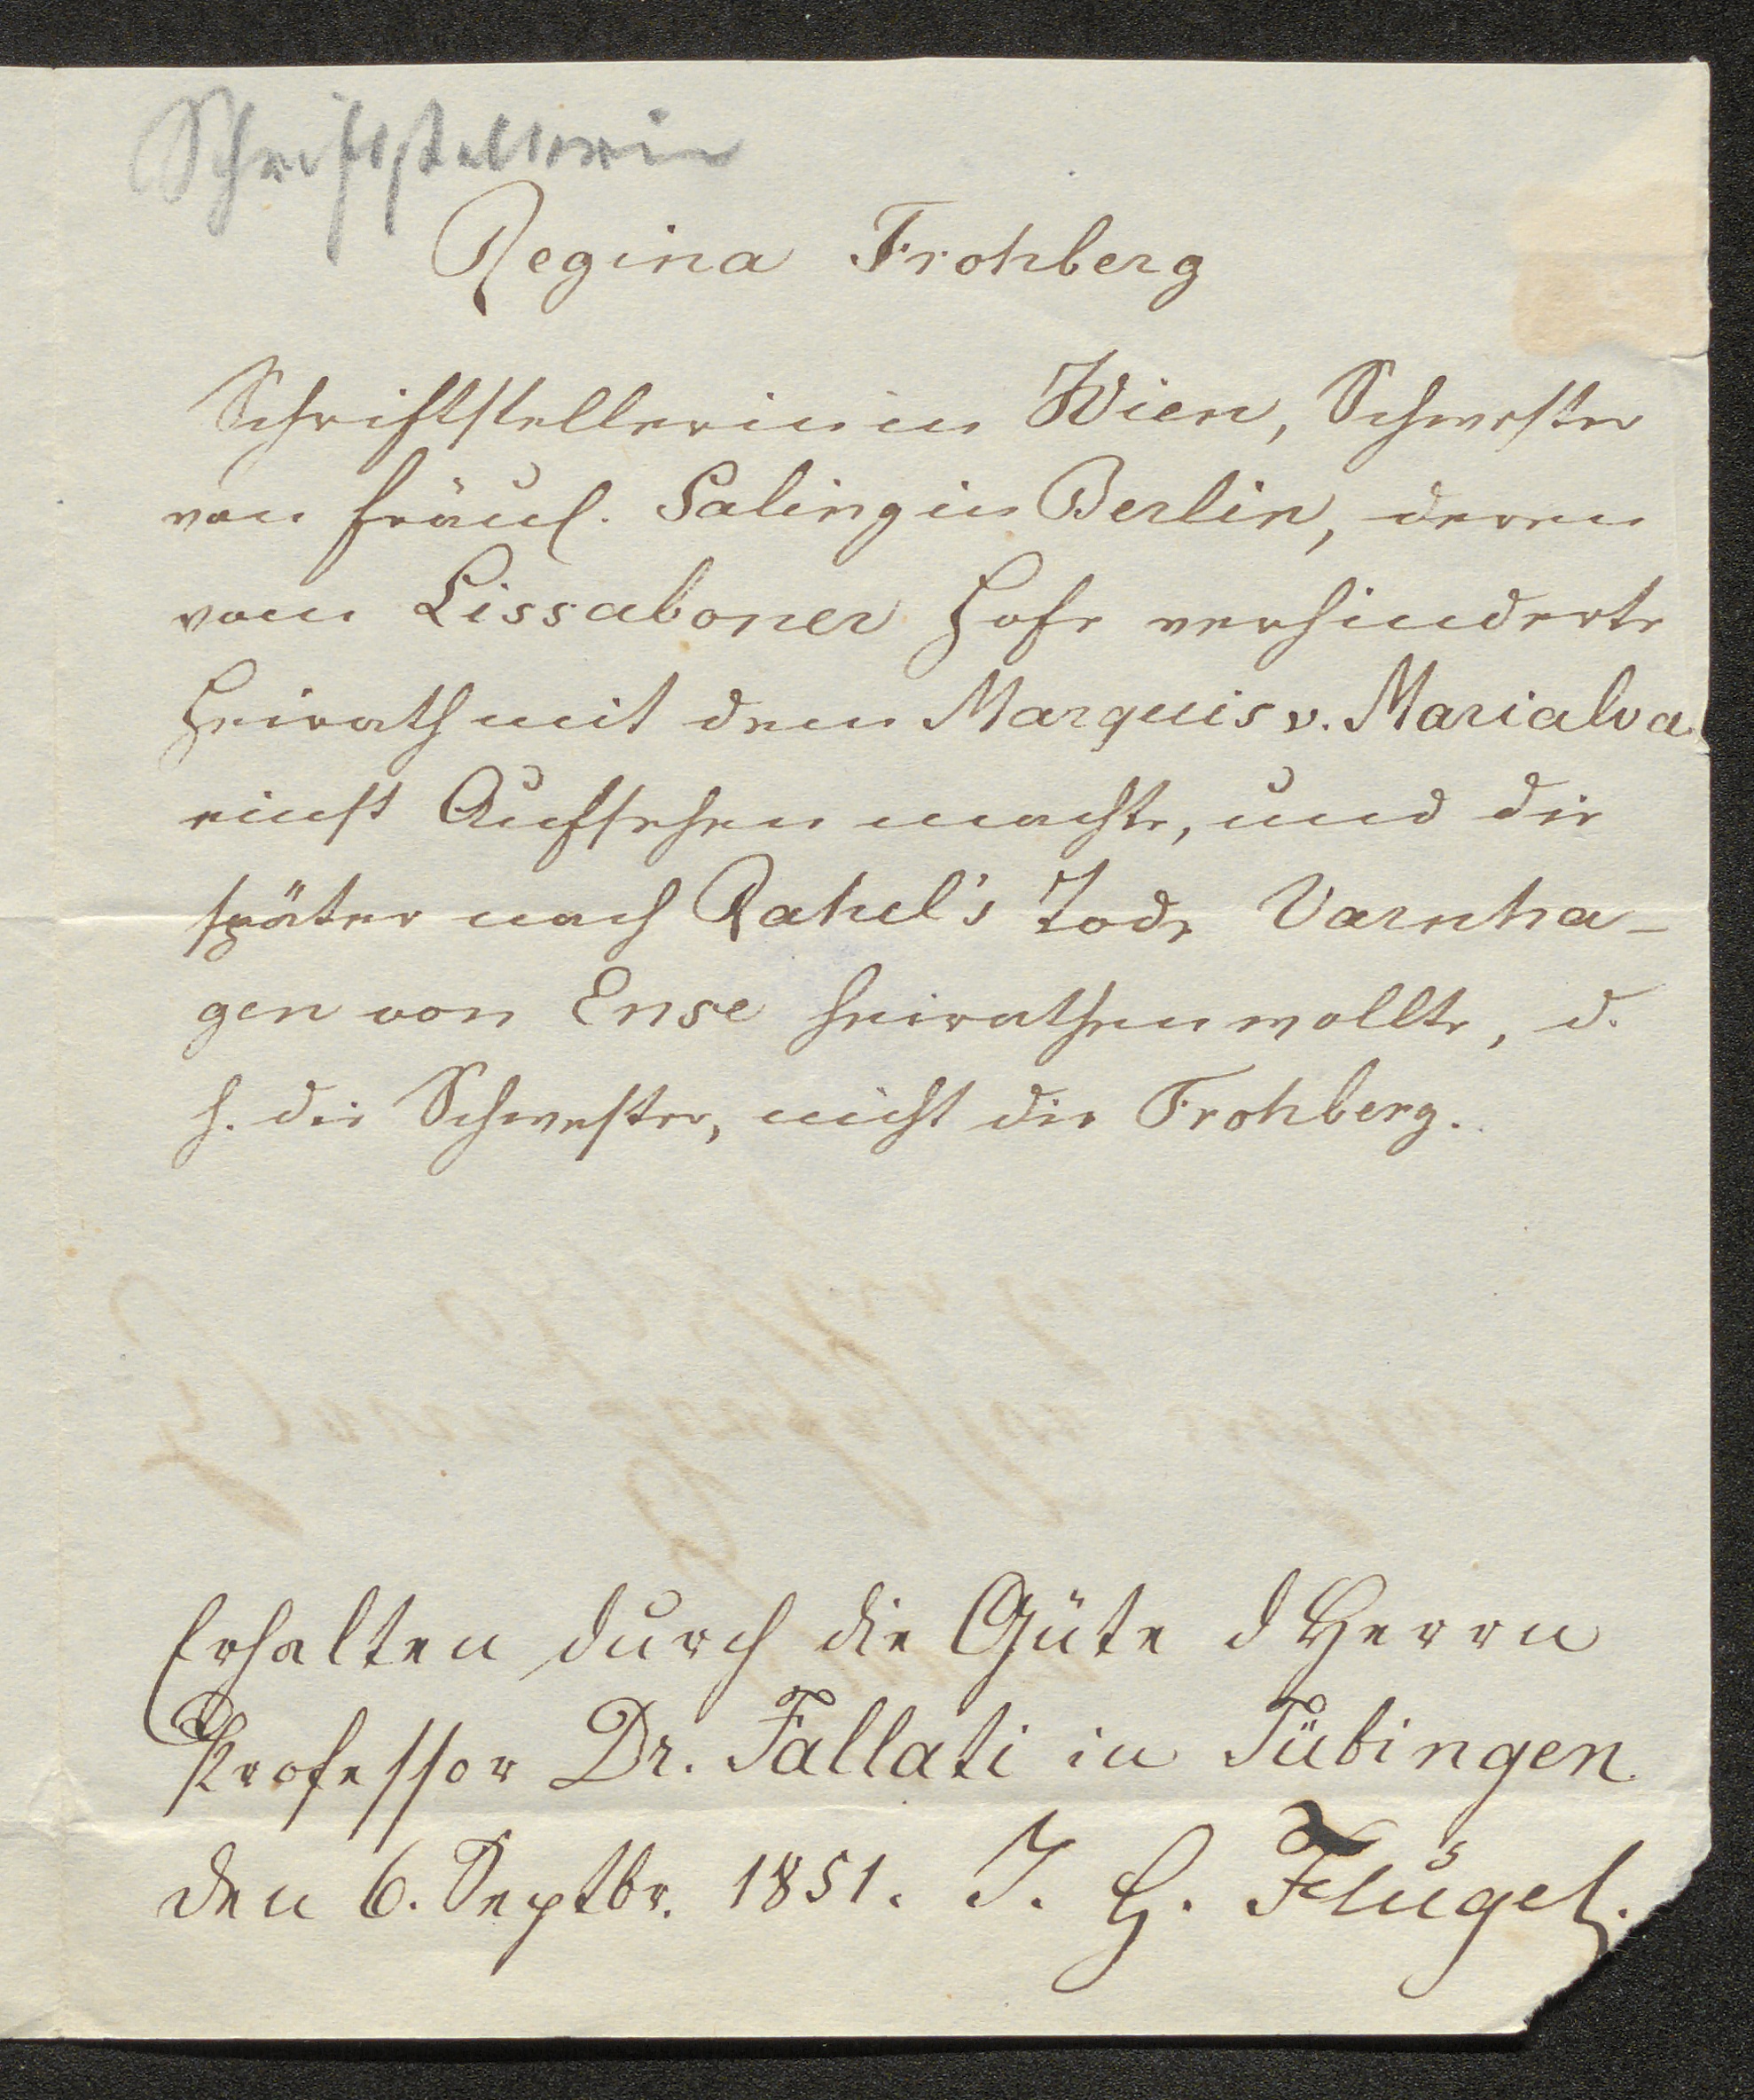 Schriftstellerin
Regina Frohberg
Schriftstellerin in Wien, Schwester
von Fräul. Saling in Berlin, deren
vom Lissaboner Hofe verhinderte
Heirath mit dem Marquis v. Marialva
einst Aufsehen machte, und die
später nach Rahel's Tode Varnha-
gen von Ense heirathen wollte, d.
h. die Schwester, nicht die Frohberg.
Erhalten durch die Güte d Herrn
Professor Dr. Fallati in Tübingen
den 6. Septbr. 1851. J. G. Flügel.